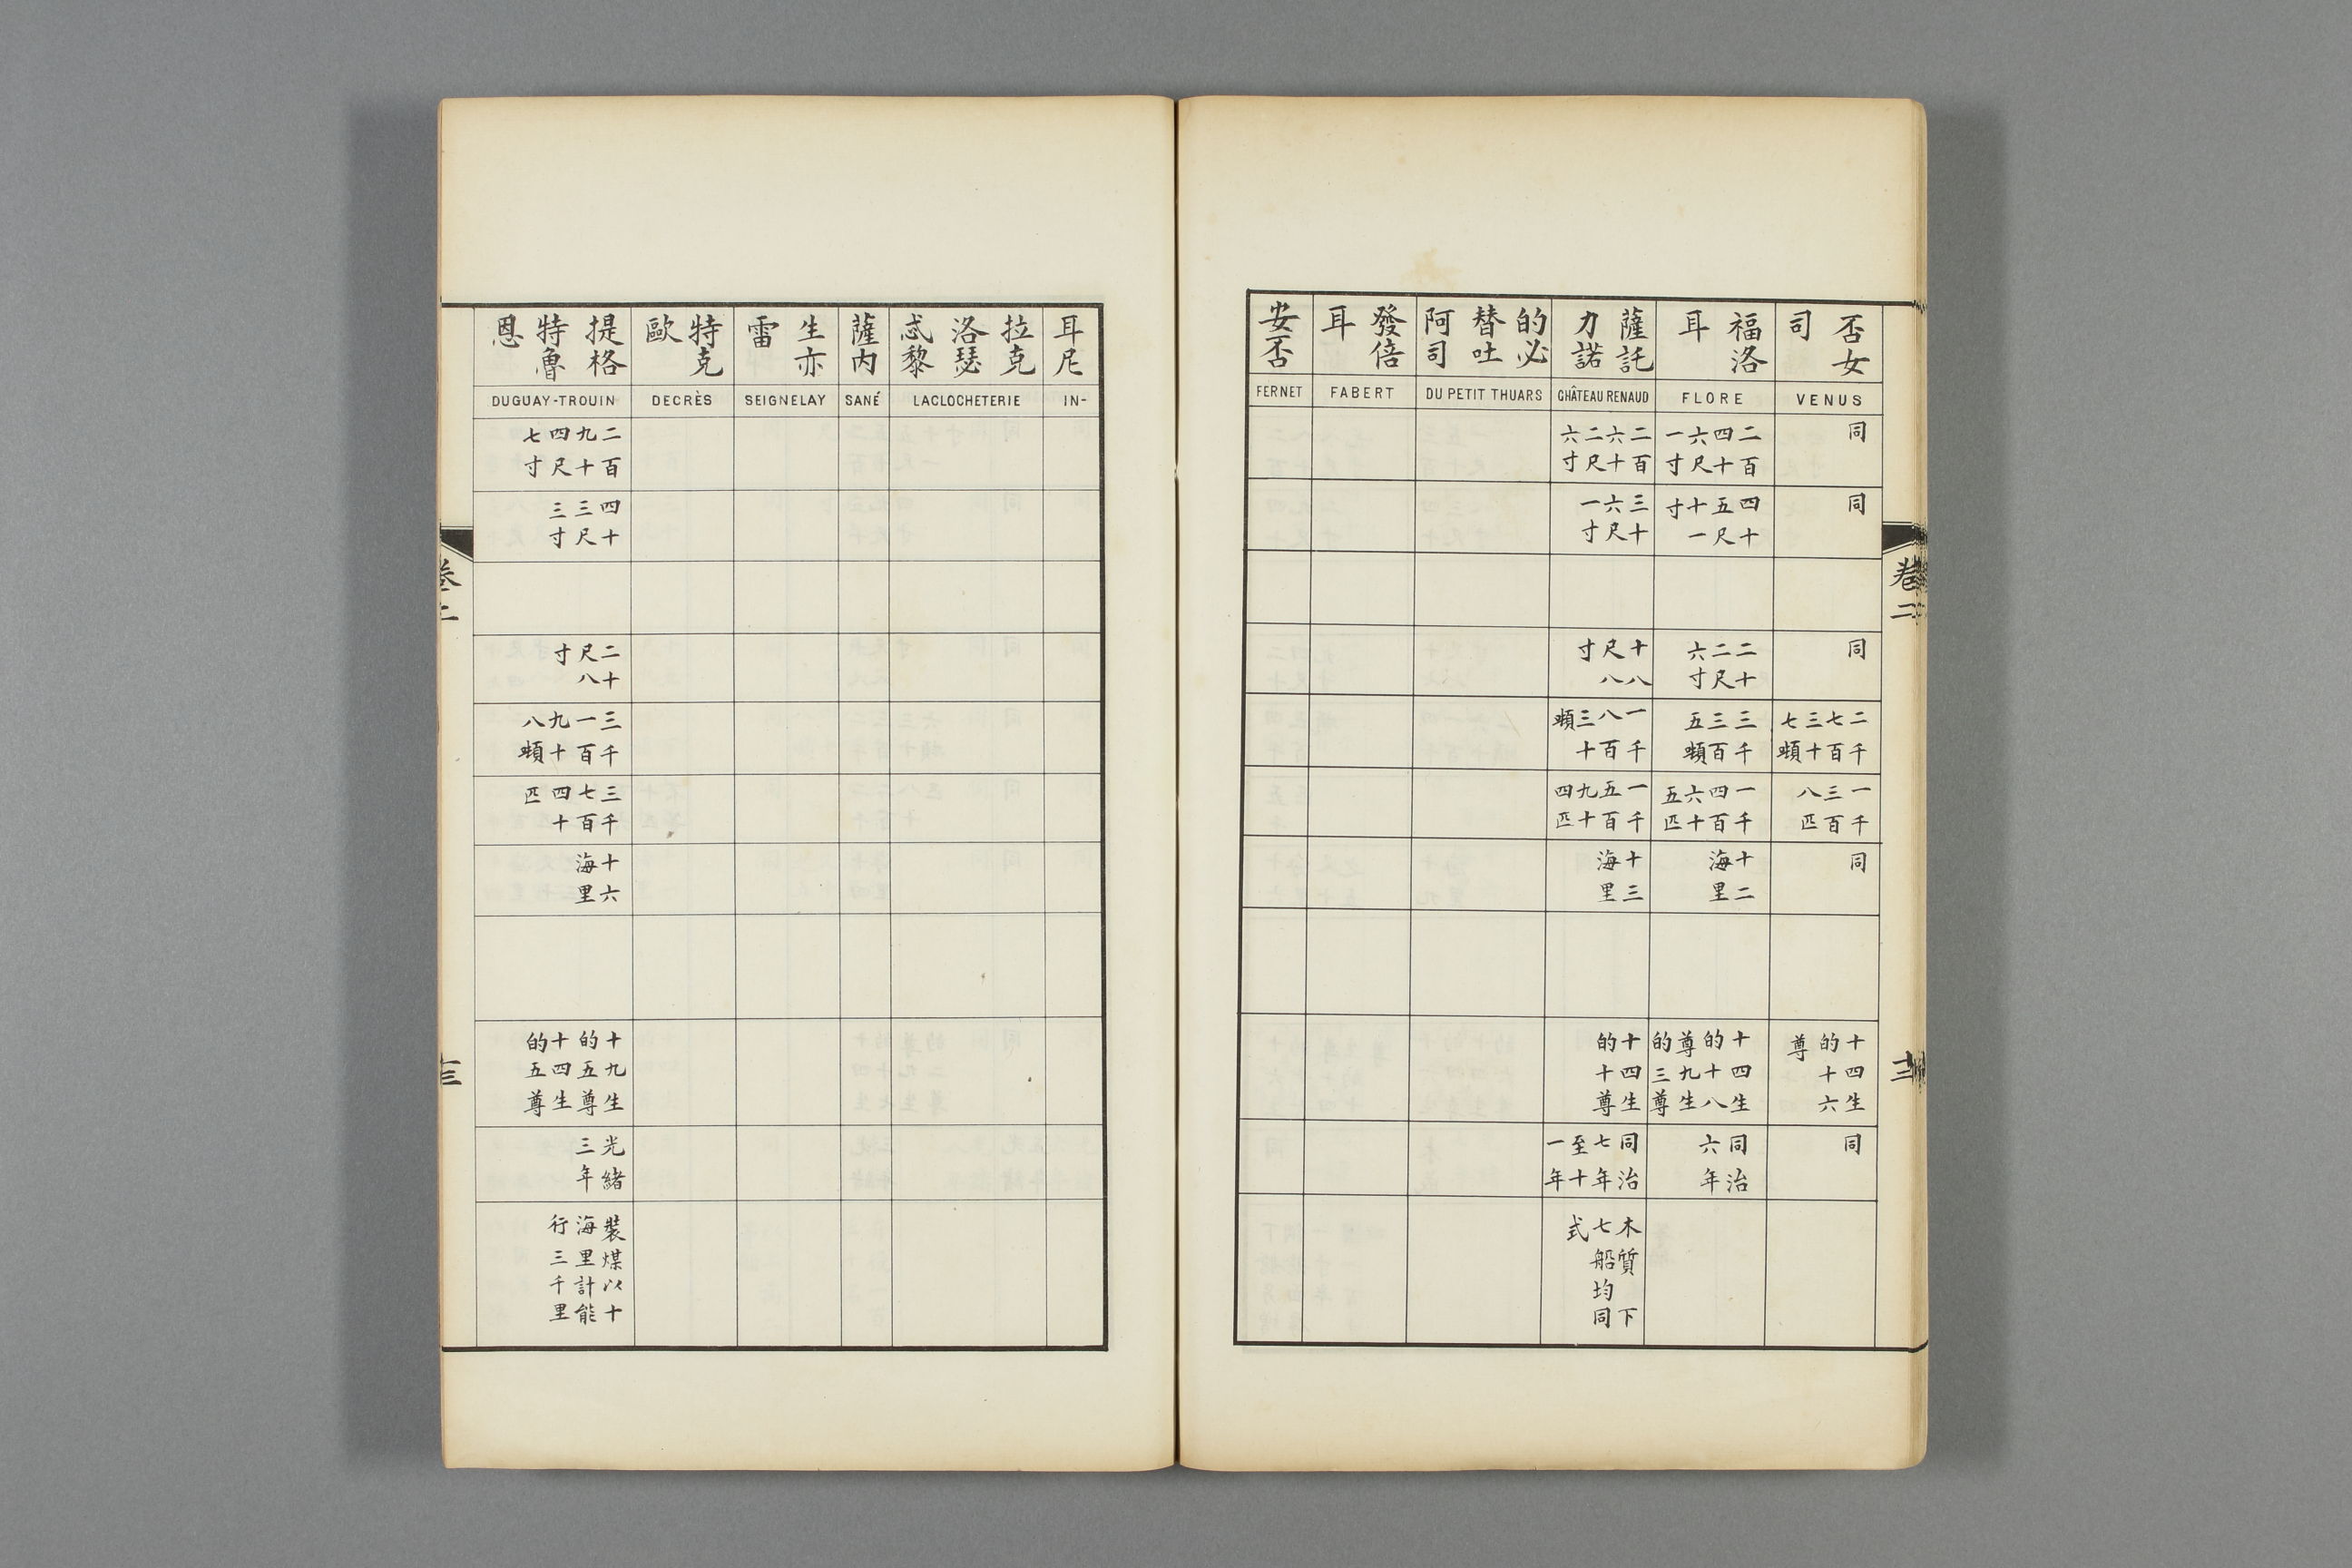 卷二
十二
否女
司
VENUS
同
同
同
二千
七百
三十
七噸
一千
三百
八匹
同
十四生
的十六
尊
同
福洛
耳
FLORE
二百
四十
六尺
一寸
四十
五尺
十一
寸
二十
二尺
六寸
三千
三百
五噸
一千
四百
六十
五匹
十二
海里
十四生
的十八
尊九生
的三尊
同治
六年
薩託
力諾
CHÂTEAU RENAUD
二百
六十
二尺
六寸
三十
六尺
一寸
十八
尺八
寸
一千
八百
三十
噸
一千
五百
九十
四匹
十三
海里
十四生
的十尊
同治
七年
至十
一年
木質下
七船均同
式
的必
替吐
阿司
DU PETIT THUARS
發倍
耳
FABERT
安否
FERNET
耳尼
IN-
拉克
洛瑟
忒黎
LACLOCHETERIE
薩內
SANÉ
生亦
雷
SEIGNELAY
特克
歐
DECRÈS
提格
特魯
恩
DUGUAY-TROUIN
二百
九十
四尺
七寸
四十
三尺
三寸
二十
尺八
寸
三千
一百
九十
八噸
三千
七百
四十
匹
十六
海里
十九生
的五尊
十四生
的五尊
光緒
三年
裝煤以十
海里計能
行三千里
卷二
十三